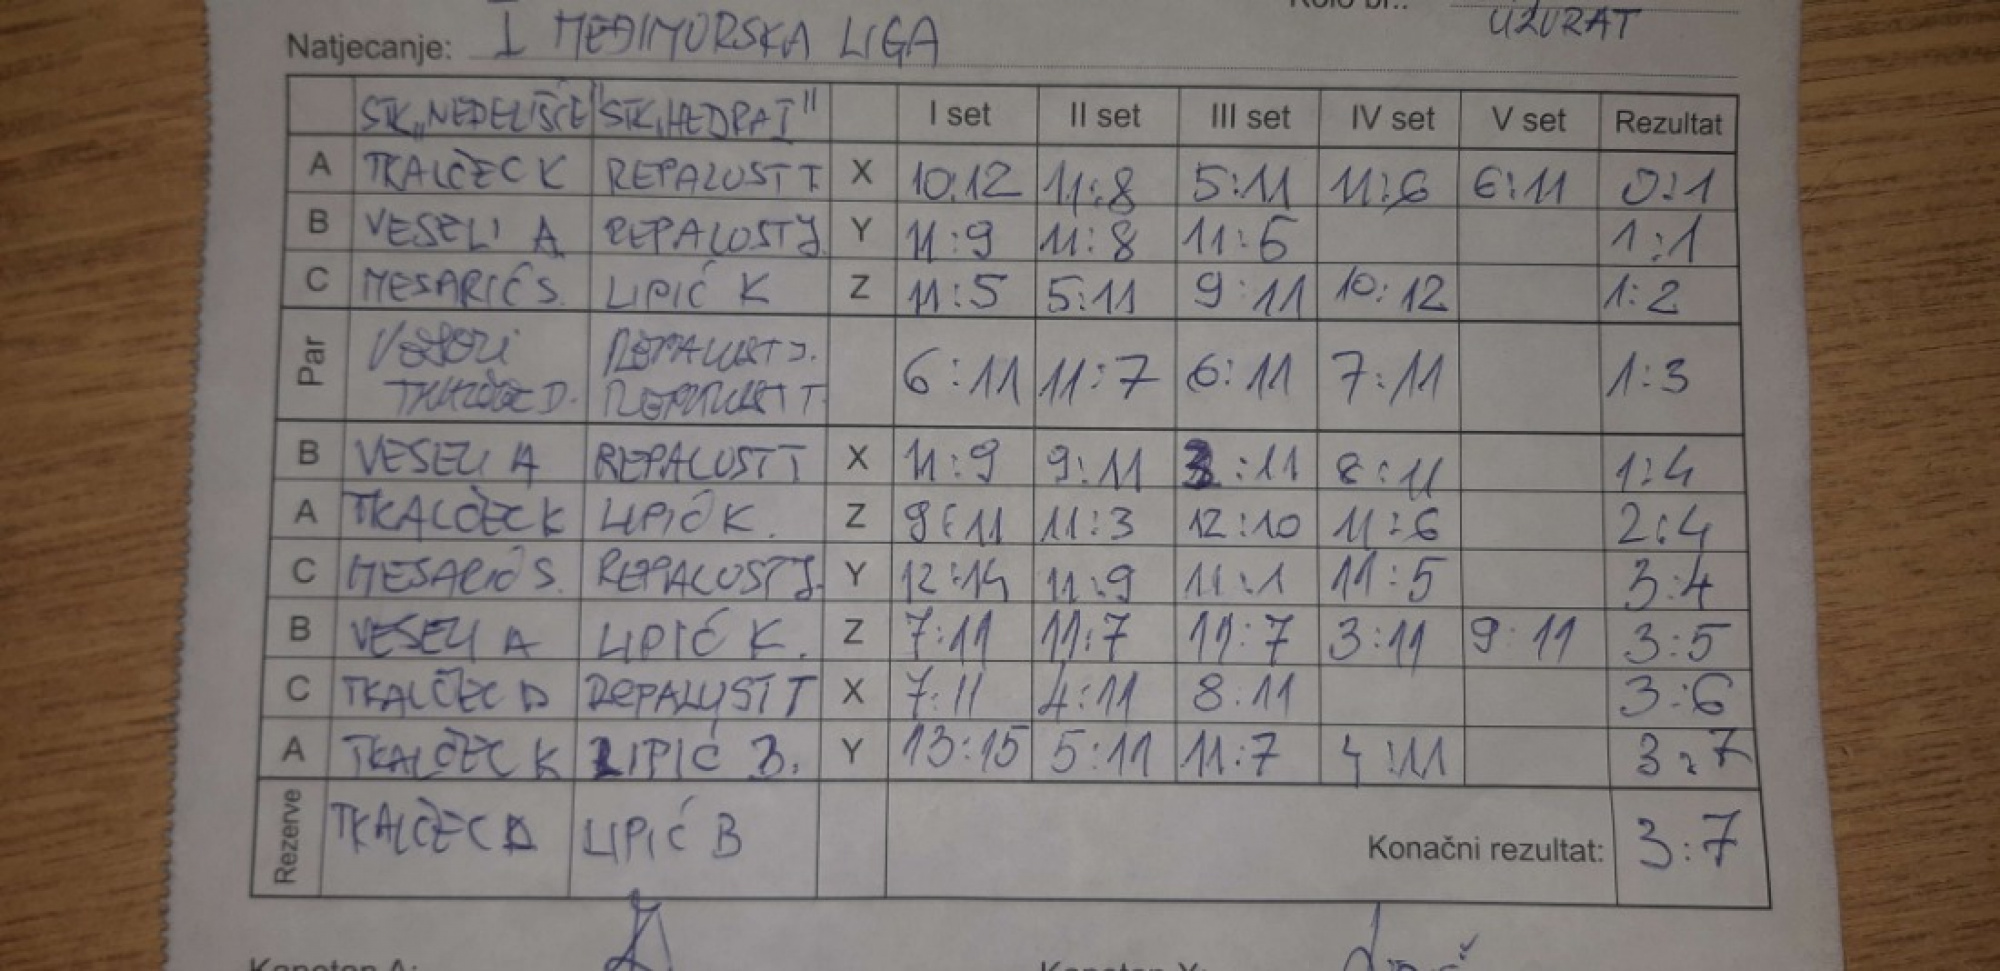 UZVRAT
Natjecanje: I MEĐIMURSKA LIGA
STK „NEDELIŠĆE" STK „HEDRAT" I set II set III set IV set V set Rezultat
A TKALČEC K REPALUST T X 10:12 11:8 5:11 11:6 6:11 0:1
B VESELI A REPALUST J. Y 11:9 11:8 11:6 1:1
C MESARIĆ S. LIPIĆ K Z 11:5 5:11 9:11 10:12 1:2
Par VESELI REPALUST J. 6:11 11:7 6:11 7:11 1:3
TKALČEC D. REPALUST T
B VESELI A REPALUST T X 11:9 9:11 3:11 8:11 1:4
A TKALČEC K LIPIĆ K. Z 9:11 11:3 12:10 11:6 2:4
C MESARIĆ S. REPALUST J. Y 12:14 11:9 11:1 11:5 3:4
B VESELI A LIPIĆ K. Z 7:11 11:7 11:7 3:11 9:11 3:5
C TKALČEC D REPALUST T X 7:11 4:11 8:11 3:6
A TKALČEC K LIPIĆ B. Y 13:15 5:11 11:7 4:11 3:7
Rezerve TKALČEC D LIPIĆ B Konačni rezultat: 3:7